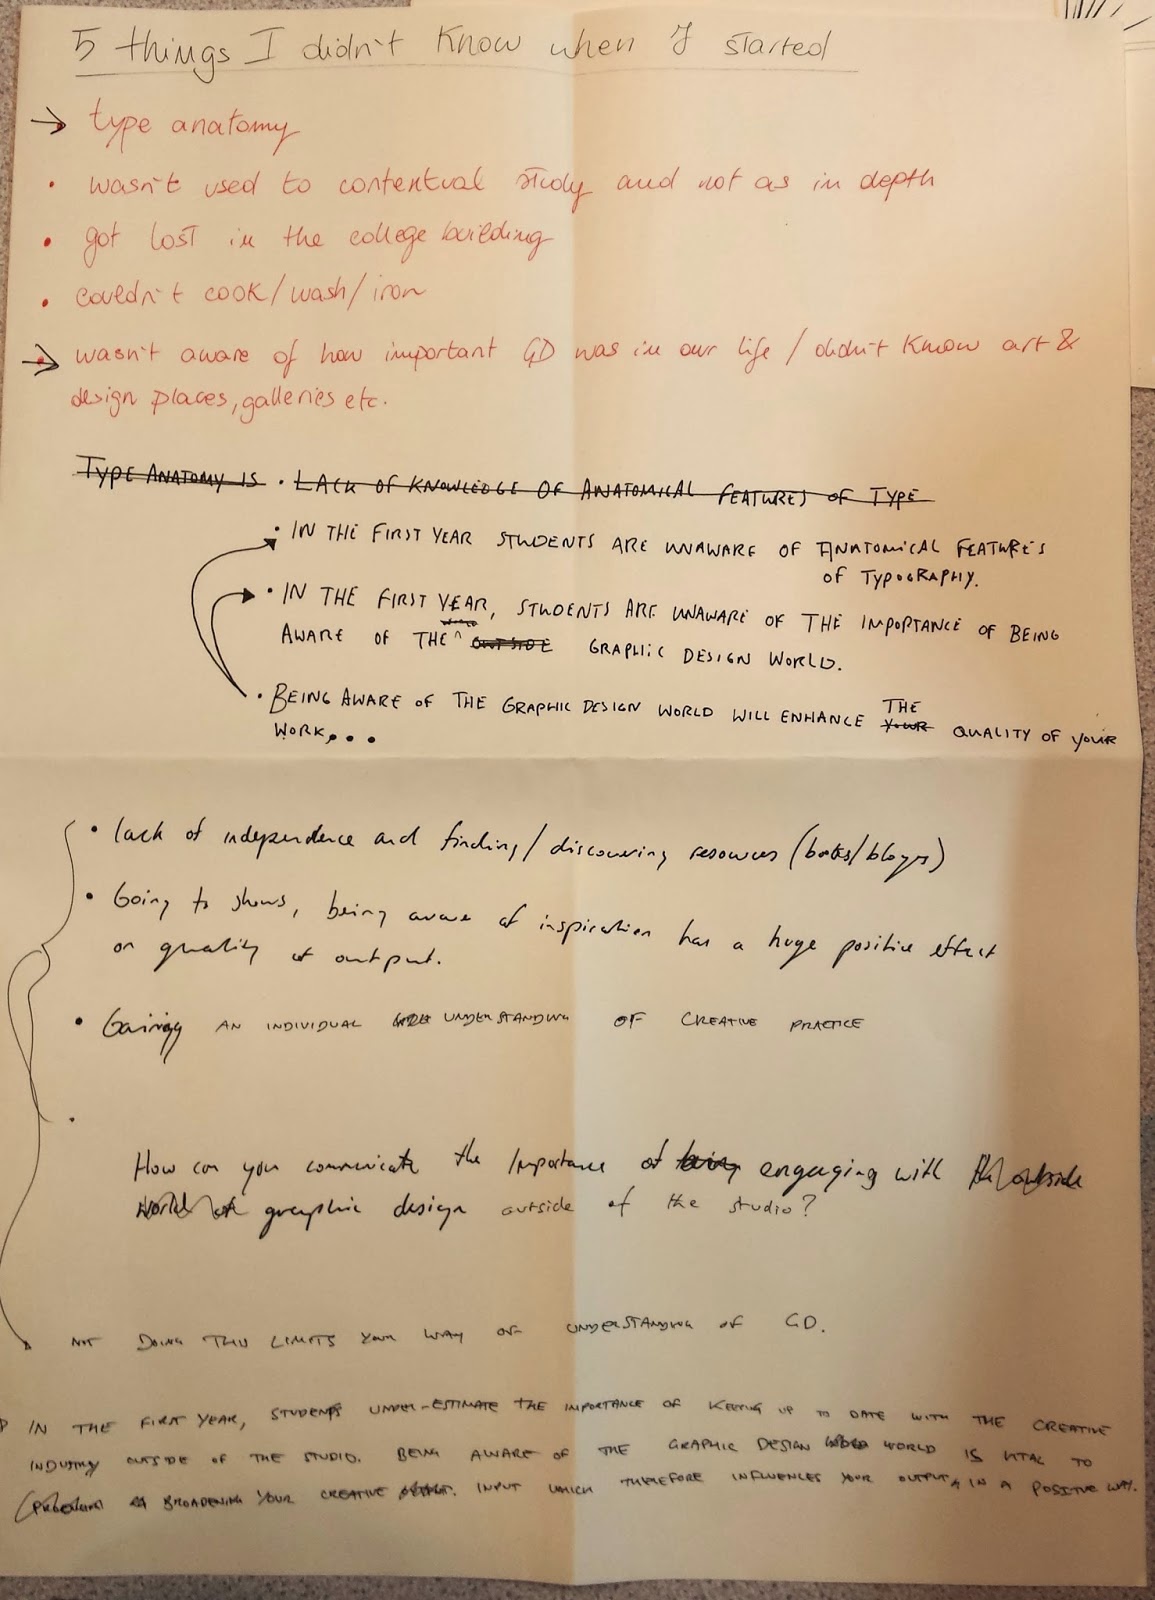 5 things I didn't know when I started
→ type anatomy
• wasn't used to contextual study and not as in depth
• got lost in the college building
• couldn't cook/wash/iron
→ wasn't aware of how important GD was in our life / didn't know art &
design places, galleries etc.
TYPE ANATOMY IS • LACK OF KNOWLEDGE OF ANATOMICAL FEATURES OF TYPE
• IN THE FIRST YEAR STUDENTS ARE UNAWARE OF ANATOMICAL FEATURES
OF TYPOGRAPHY.
• IN THE FIRST YEAR, STUDENTS ARE UNAWARE OF THE IMPORTANCE OF BEING
AWARE OF THE ^ OUTSIDE GRAPHIC DESIGN WORLD.
• BEING AWARE OF THE GRAPHIC DESIGN WORLD WILL ENHANCE YOUR THE QUALITY OF YOUR
WORK...
• lack of independence and finding/discovering resources (books/blogs)
• Going to shows, being aware of inspiration has a huge positive effect
on quality of output.
• Gaining AN INDIVIDUAL UNDERSTANDING OF CREATIVE PRACTICE
•
How can you communicate the importance of being engaging with the outside
world of graphic design outside of the studio?
NOT DOING THIS LIMITS YOUR WAY OF UNDERSTANDING OF GD.
IN THE FIRST YEAR, STUDENTS UNDER-ESTIMATE THE IMPORTANCE OF KEEPING UP TO DATE WITH THE CREATIVE
INDUSTRY OUTSIDE OF THE STUDIO. BEING AWARE OF THE GRAPHIC DESIGN WORLD IS VITAL TO
BROADENING YOUR CREATIVE INPUT WHICH THEREFORE INFLUENCES YOUR OUTPUT IN A POSITIVE WAY.